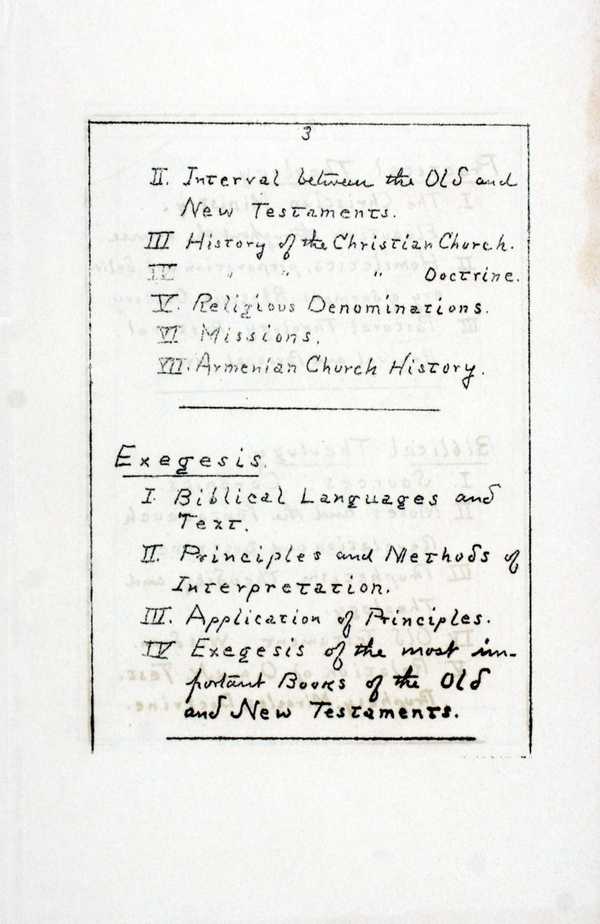 3
II. Interval between the Old and
New Testaments.
III History of the Christian Church.
IV " " " Doctrine.
V. Religious Denominations.
VI Missions.
VII. Armenian Church History.
Exegesis.
I. Biblical Languages and
Text.
II. Principles and Methods of
Interpretation.
III. Application of Principles.
IV Exegesis of the most im-
portant Books of the Old
and New Testaments.